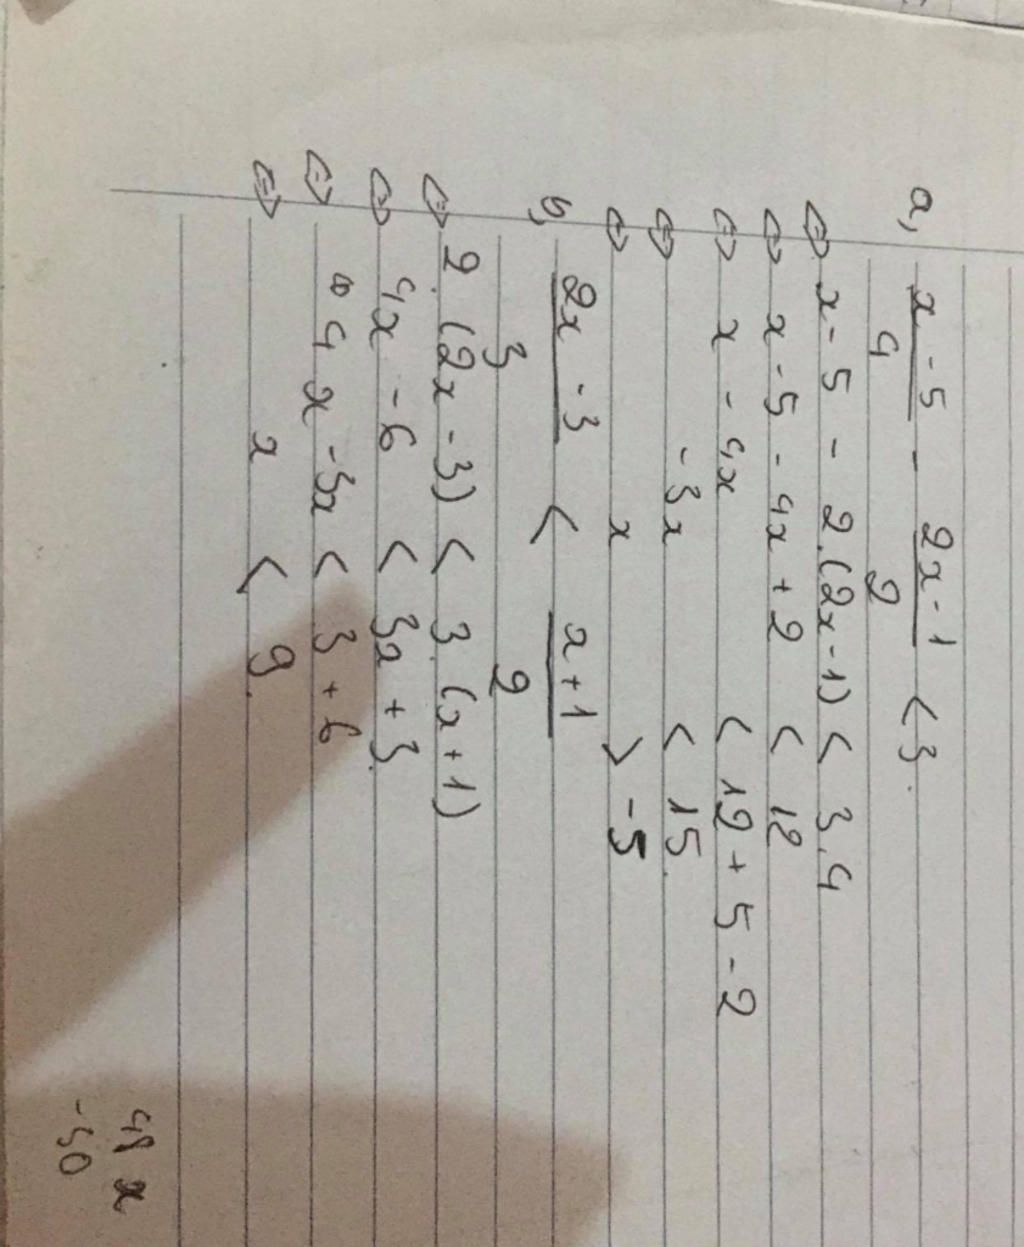 a, x - 5 / 4 - 2x - 1 / 2 < 3.
⇔ x - 5 - 2.(2x - 1) < 3.4
⇔ x - 5 - 4x + 2 < 12
⇔ x - 4x < 12 + 5 - 2
⇔ -3x < 15.
⇔ x > -5
b, 2x - 3 / 3 < x + 1 / 2
⇔ 2.(2x - 3) < 3.(x + 1)
⇔ 4x - 6 < 3x + 3.
⇔ 4x - 3x < 3 + 6
⇔ x < 9.